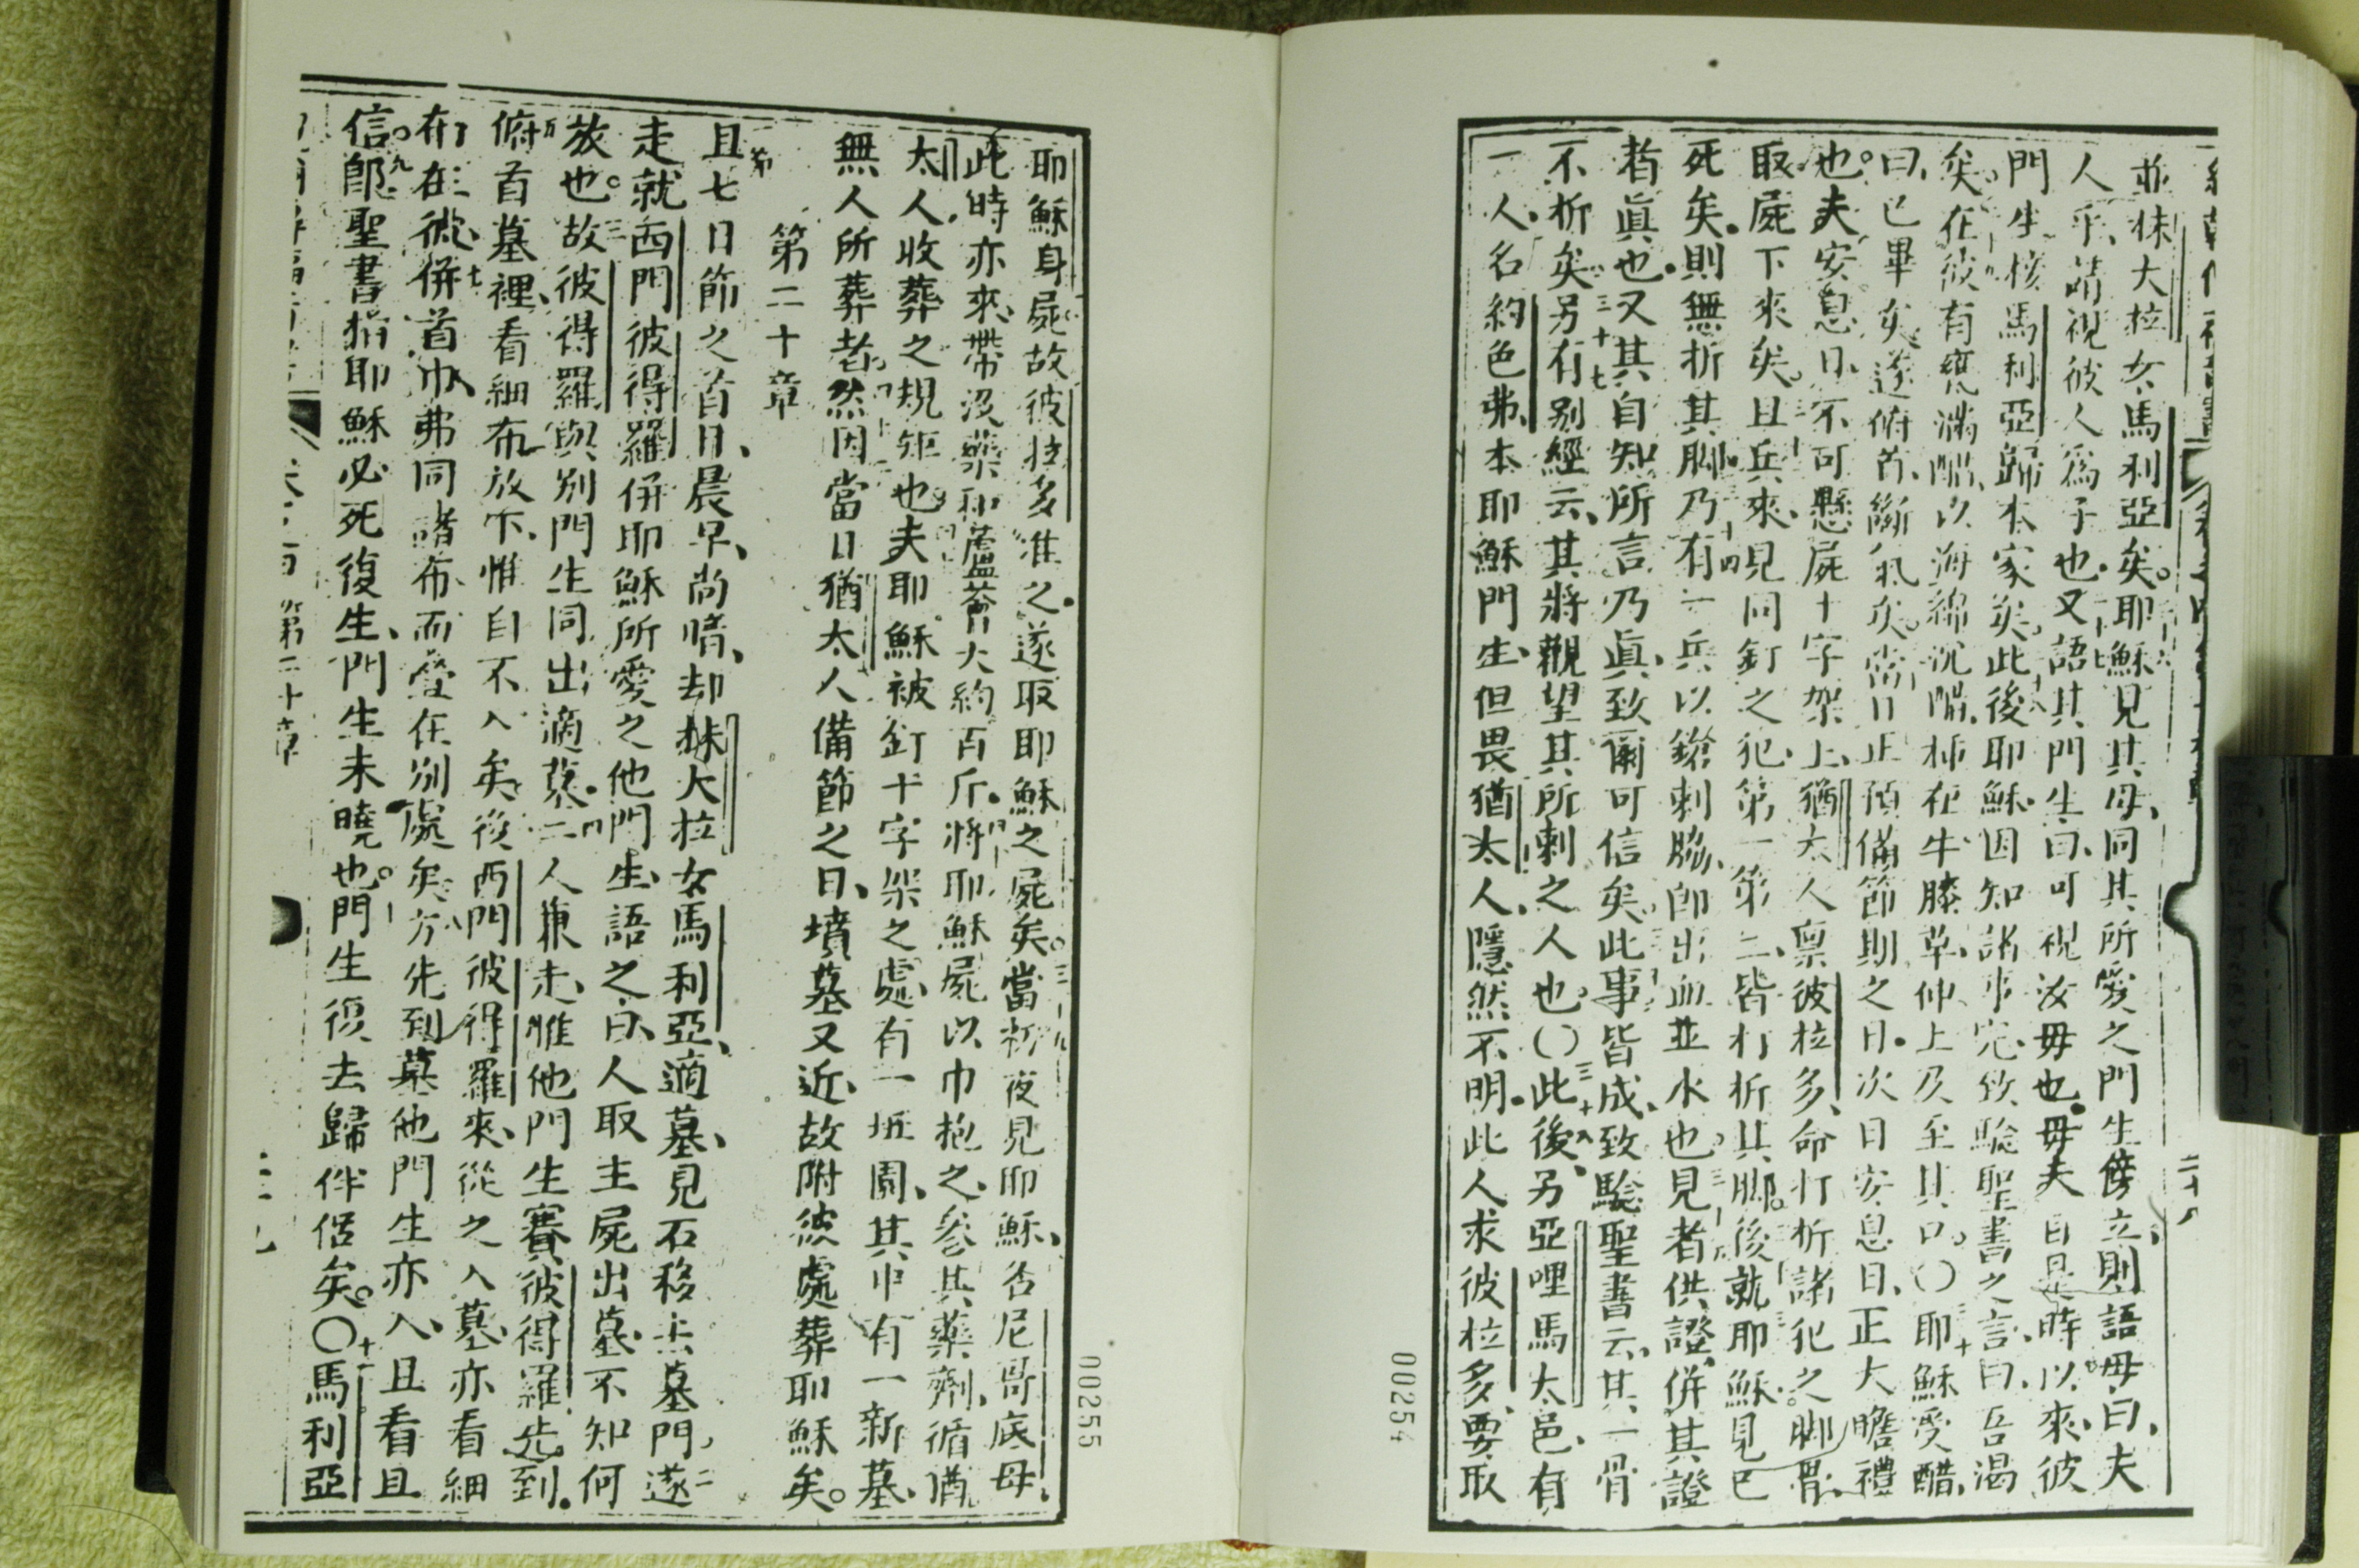 並䊈大拉女馬利亞矣。耶穌見其母、同其所愛之門生傍立、則語母曰、夫
人乎、請視彼人為子也。又語其門生、曰、可視汝母也。毋夫自是時以來、彼
門生接馬利亞歸本家矣。此後耶穌、因知諸事完、致驗聖書之言、曰、吾渴
矣。在彼有甕滿醋、以海綿沉醋、插在牛膝草、伸上及至其口。〇耶穌受醋、
曰、已畢矣、遂俯首、斷氣矣。當日正預備節期之日。次日安息日、正大瞻禮
也。夫安息日、不可懸屍十字架上、猶太人稟彼拉多、命打折諸犯之腳骨、
取屍下來矣。且兵來、見同釘之犯、第一第二、皆打折其腳。後就耶穌、見已
死矣、則無折其腳、乃有一兵以鎗刺脇、即出血並水也。見者供證、併其證
者真也。又其自知所言乃真、致爾可信矣。此事皆成、致驗聖書云、其一骨
不折矣。另有別經云、其將觀望其所刺之人也。〇此後、另亞哩馬太邑、有
一人、名約色弗、本耶穌門生、但畏猶太人、隱然不明。此人求彼拉多、要取
00254
耶穌身屍、故彼拉多准之。遂取耶穌之屍矣。當初夜見耶穌、吝尼哥底母、
此時亦來、帶沒藥和蘆薈、大約百斤。將耶穌屍以巾抱之、參其藥劑、循猶
太人、收葬之規矩也。夫耶穌被釘十字架之處、有一坵園、其中有一新墓、
無人所葬者。然因當日猶太人備節之日、墳墓又近、故附彼處葬耶穌矣。
第二十章
且七日節之首日、晨早、尚暗、却䊈大拉女馬利亞、適墓、見石移去墓門、遂
走就西門彼得羅併耶穌所愛之他門生、語之曰、人取主屍出墓、不知何
放也。故彼得羅與別門生同出適墓。二人兼走、惟他門生賽彼得羅先到。
俯首墓裡、看細布放下、惟自不入矣。後西門彼得羅來、從之入墓、亦看細
布在彼、併首巾、弗同諸布、而叠在別處矣。方先到墓他門生亦入、且看且
信。郎聖書指耶穌必死復生、門生未曉也。門生復去歸伴侶矣。〇馬利亞
第二十章
00255